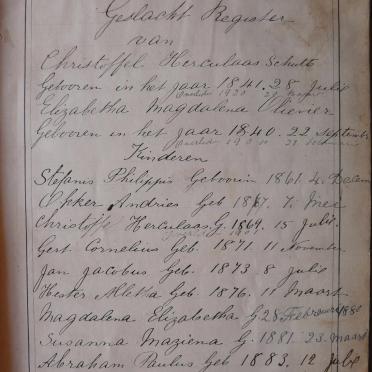 Geslacht Register
van
Christoffel Herculaas Schutte
Geboren in het jaar 1841. 28 Julie
Overleden 1920
Elizabetha Magdalena Olivier
Geboren in het jaar 1840. 22 September
Overled 19
Kinderen
Stefanis Philippis Geboorin 1861. 4. Decem
Opker Andries Geb 1867. 7. Mei
Christoffe Herculaas G. 1869. 15 Julie.
Gert Cornelius Geb. 1871 11 November
Jan Jacobus Geb. 1873 8 Julie
Hester Alletha Geb. 1876. 11 Maart
Magdalena Elizabetha G 28 Februarie 1880
Susanna Maziena G. 1881. 23. Maart
Abraham Paulus Geb 1883. 12 Julie